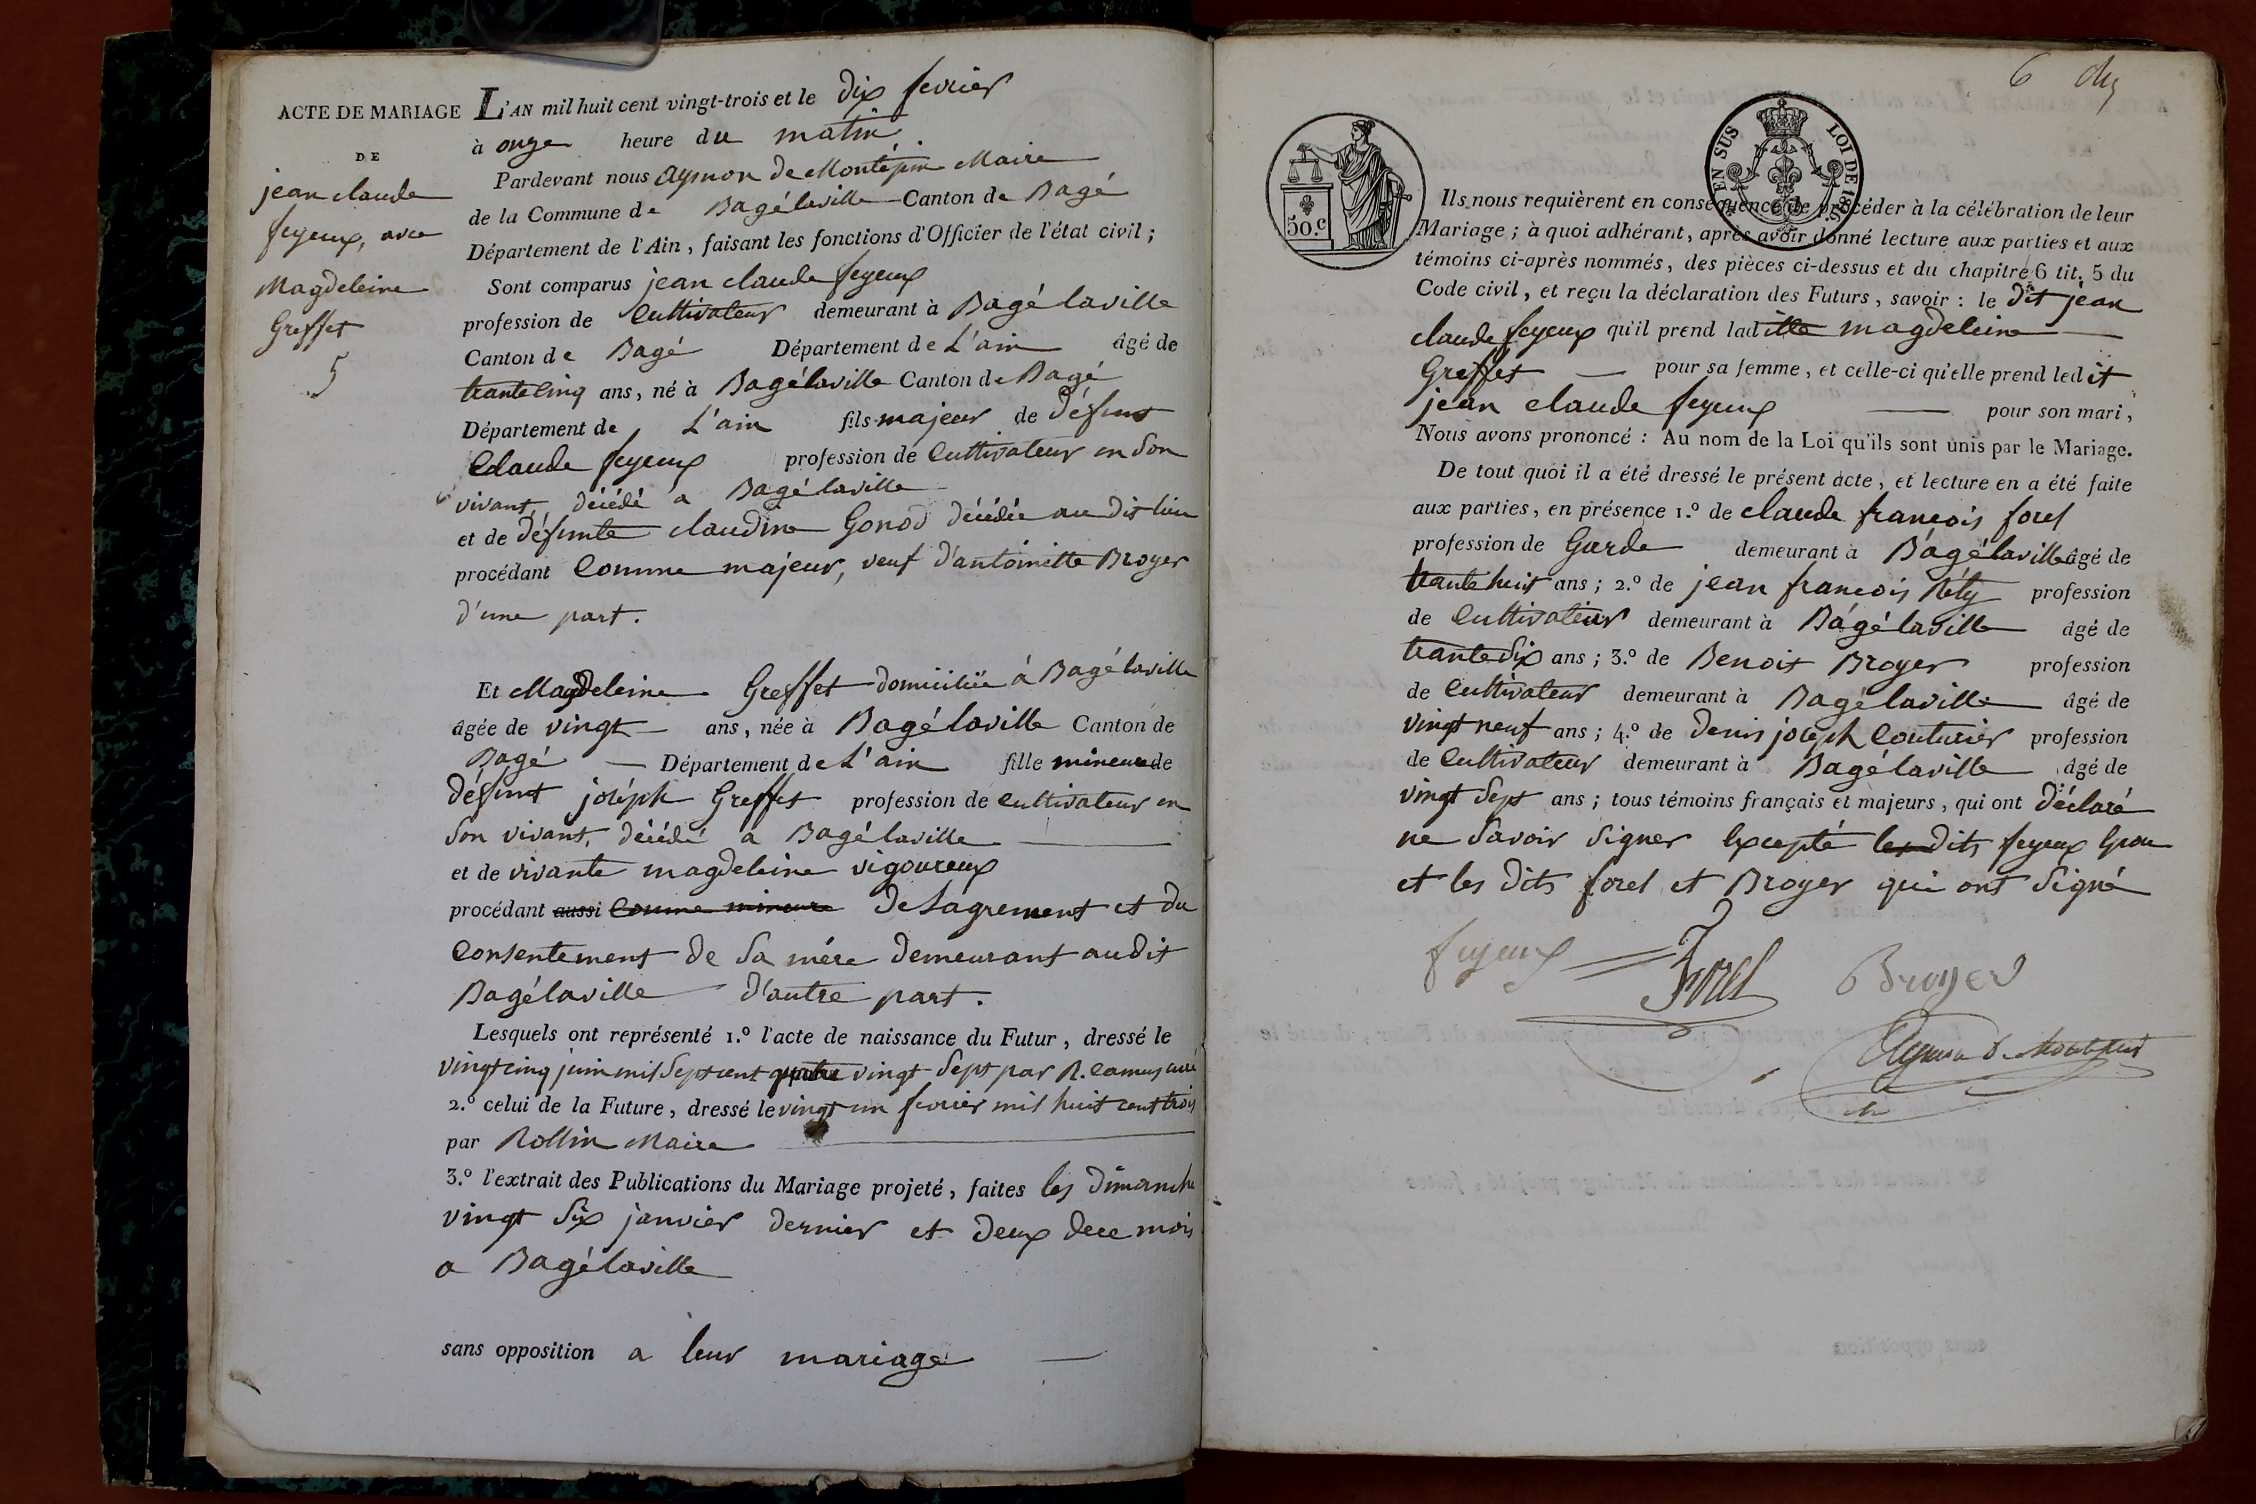 ACTE DE MARIAGE
DE
jean claude
feyeux, avec
Magdeleine
Greffet
5
L'AN mil huit cent vingt-trois et le dix fevrier
à onze heure du matin
Pardevant nous Aymon de Montépin Maire
de la Commune de Bagélaville Canton de Bagé
Département de l'Ain, faisant les fonctions d'Officier de l'état civil;
Sont comparus jean claude feyeux
profession de Cultivateur demeurant à Bagé laville
Canton de Bagé Département de L'ain âgé de
trante cinq ans, né à Bagélaville Canton de Bagé
Département de L'ain fils majeur de défunt
Claude feyeux profession de Cultivateur en son
vivant, décédé a Bagélaville
et de défunte claudine Gonod décédée au dit lieu
procédant Comme majeur, veuf d'antoinette Broyer
d'une part.
Et Magdeleine Greffet domiciliée à Bagé laville
âgée de vingt ans, née à Bagélaville Canton de
Bagé Département de L'ain fille mineure de
défunt joséph Greffet profession de cultivateur en
son vivant, décédé a Bagélaville
et de vivante magdeleine vigoureux
procédant aussi Comme mineure de Lagrement et du
Consentement de sa mére demeurant audit
Bagélaville d'autre part.
Lesquels ont représenté 1.º l'acte de naissance du Futur, dressé le
vingt cinq juin mil sept cent quatre vingt sept par R. Camus curé
2.º celui de la Future, dressé le vingt un fevrier mil huit cent trois
par Rollin Maire
3.º l'extrait des Publications du Mariage projeté, faites les dimanche
vingt six janvier dernier et deux de ce mois
a Bagélaville
sans opposition a leur mariage
6
50.c
EN SUS
LOI DE
Ils nous requièrent en conséquence de procéder à la célébration de leur
Mariage; à quoi adhérant, après avoir donné lecture aux parties et aux
témoins ci-après nommés, des pièces ci-dessus et du chapitre 6 tit. 5 du
Code civil, et reçu la déclaration des Futurs, savoir: le dit jean
claude feyeux qu'il prend ladite magdeleine
Greffet pour sa femme, et celle-ci qu'elle prend ledit
jean claude feyeux pour son mari,
Nous avons prononcé: Au nom de la Loi qu'ils sont unis par le Mariage.
De tout quoi il a été dressé le présent acte, et lecture en a été faite
aux parties, en présence 1.º de claude françois forel
profession de Garde demeurant à Bagélaville âgé de
trante huit ans; 2.º de jean françois Rély profession
de Cultivateur demeurant à Bagélaville âgé de
trante six ans; 3.º de Benoit Broyer profession
de Cultivateur demeurant à Bagélaville âgé de
vingt neuf ans; 4.º de denis joseph Couturier profession
de Cultivateur demeurant à Bagélaville âgé de
vingt sept ans; tous témoins français et majeurs, qui ont déclaré
ne savoir signer Excepté les dits feyeux Epoux
et les dits forel et Broyer qui ont signé
feyeux
Forel
Broyer
Aymon de Montépin